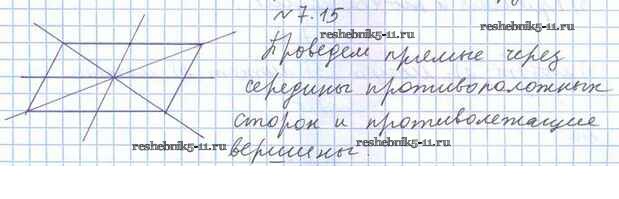 №7.15
reshebnik5-11.ru
reshebnik5-11.ru
Проведем прямые через
середины противоположных
сторон и противолежащие
reshebnik5-11.ru
reshebnik5-11.ru
вершины.